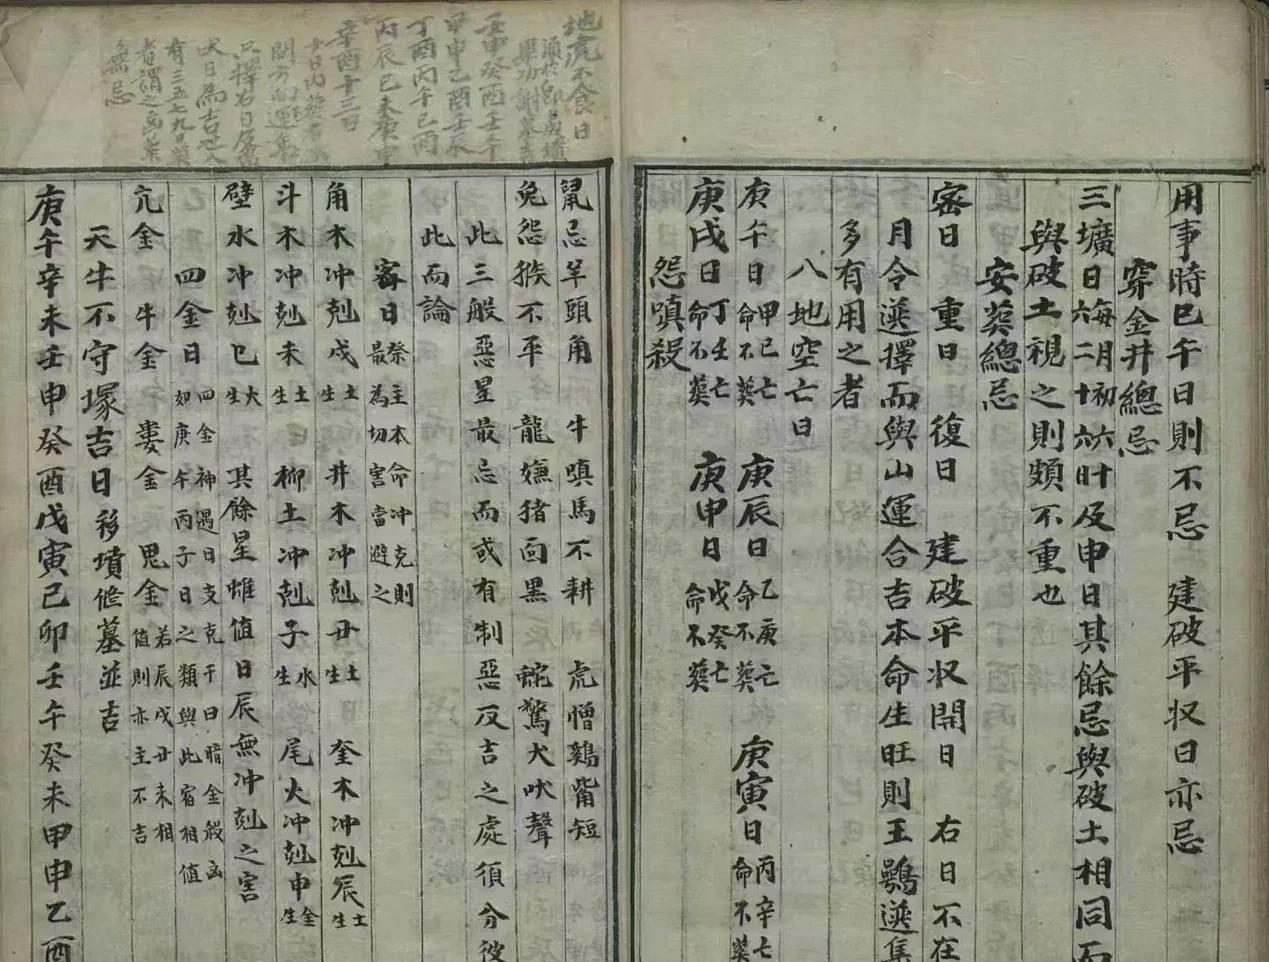 用事時巳午日則不忌 建破平収日亦忌
穿金井總忌
三壙日每月初六十六卄六及申日其餘忌與破土相同而
與破土視之則頗不重也
安葬總忌
密日 重日 復日 建破平収開日 右日不在
月令選擇而與山運合吉本命生旺則王鶚選集
多有用之者
八地空亡日
庚午日甲己亡命不葬 庚辰日乙庚亡命不葬 庚寅日丙辛亡命不葬
庚戌日丁壬亡命不葬 庚申日戊癸亡命不葬
怨嗔殺
鼠忌羊頭角 牛嗔馬不耕 虎憎鷄嘴短
兔怨猴不平 龍嫌猪面黑 蛇驚犬吠聲
此三般惡星最忌而或有制惡反吉之處須分彼
此而論
密日祭主本命冲克則最為切害當避之
角木冲尅戌土生 井木冲尅丑土生 奎木冲尅辰土生
斗木冲尅未土生 柳土冲尅子水生 尾火冲尅申金生
壁水冲尅巳火生 其餘星雖值日辰無冲尅之害
四金日四金神遇日支克干曰暗金殺凶如庚午丙子日之類與此宿相值
亢金 牛金 婁金 鬼金若辰戌丑未相值則亦主不吉
天牛不守塚吉日移墳修墓並吉
庚午辛未壬申癸酉戊寅己卯壬午癸未甲申乙酉
地虎不食日
壬申癸酉壬午
甲申乙酉壬辰
丁酉丙午己酉
丙辰己未庚申
辛酉十三日
只擇右日
犬日為吉世人
有三五七九日葬
者謂之凶葬
無忌